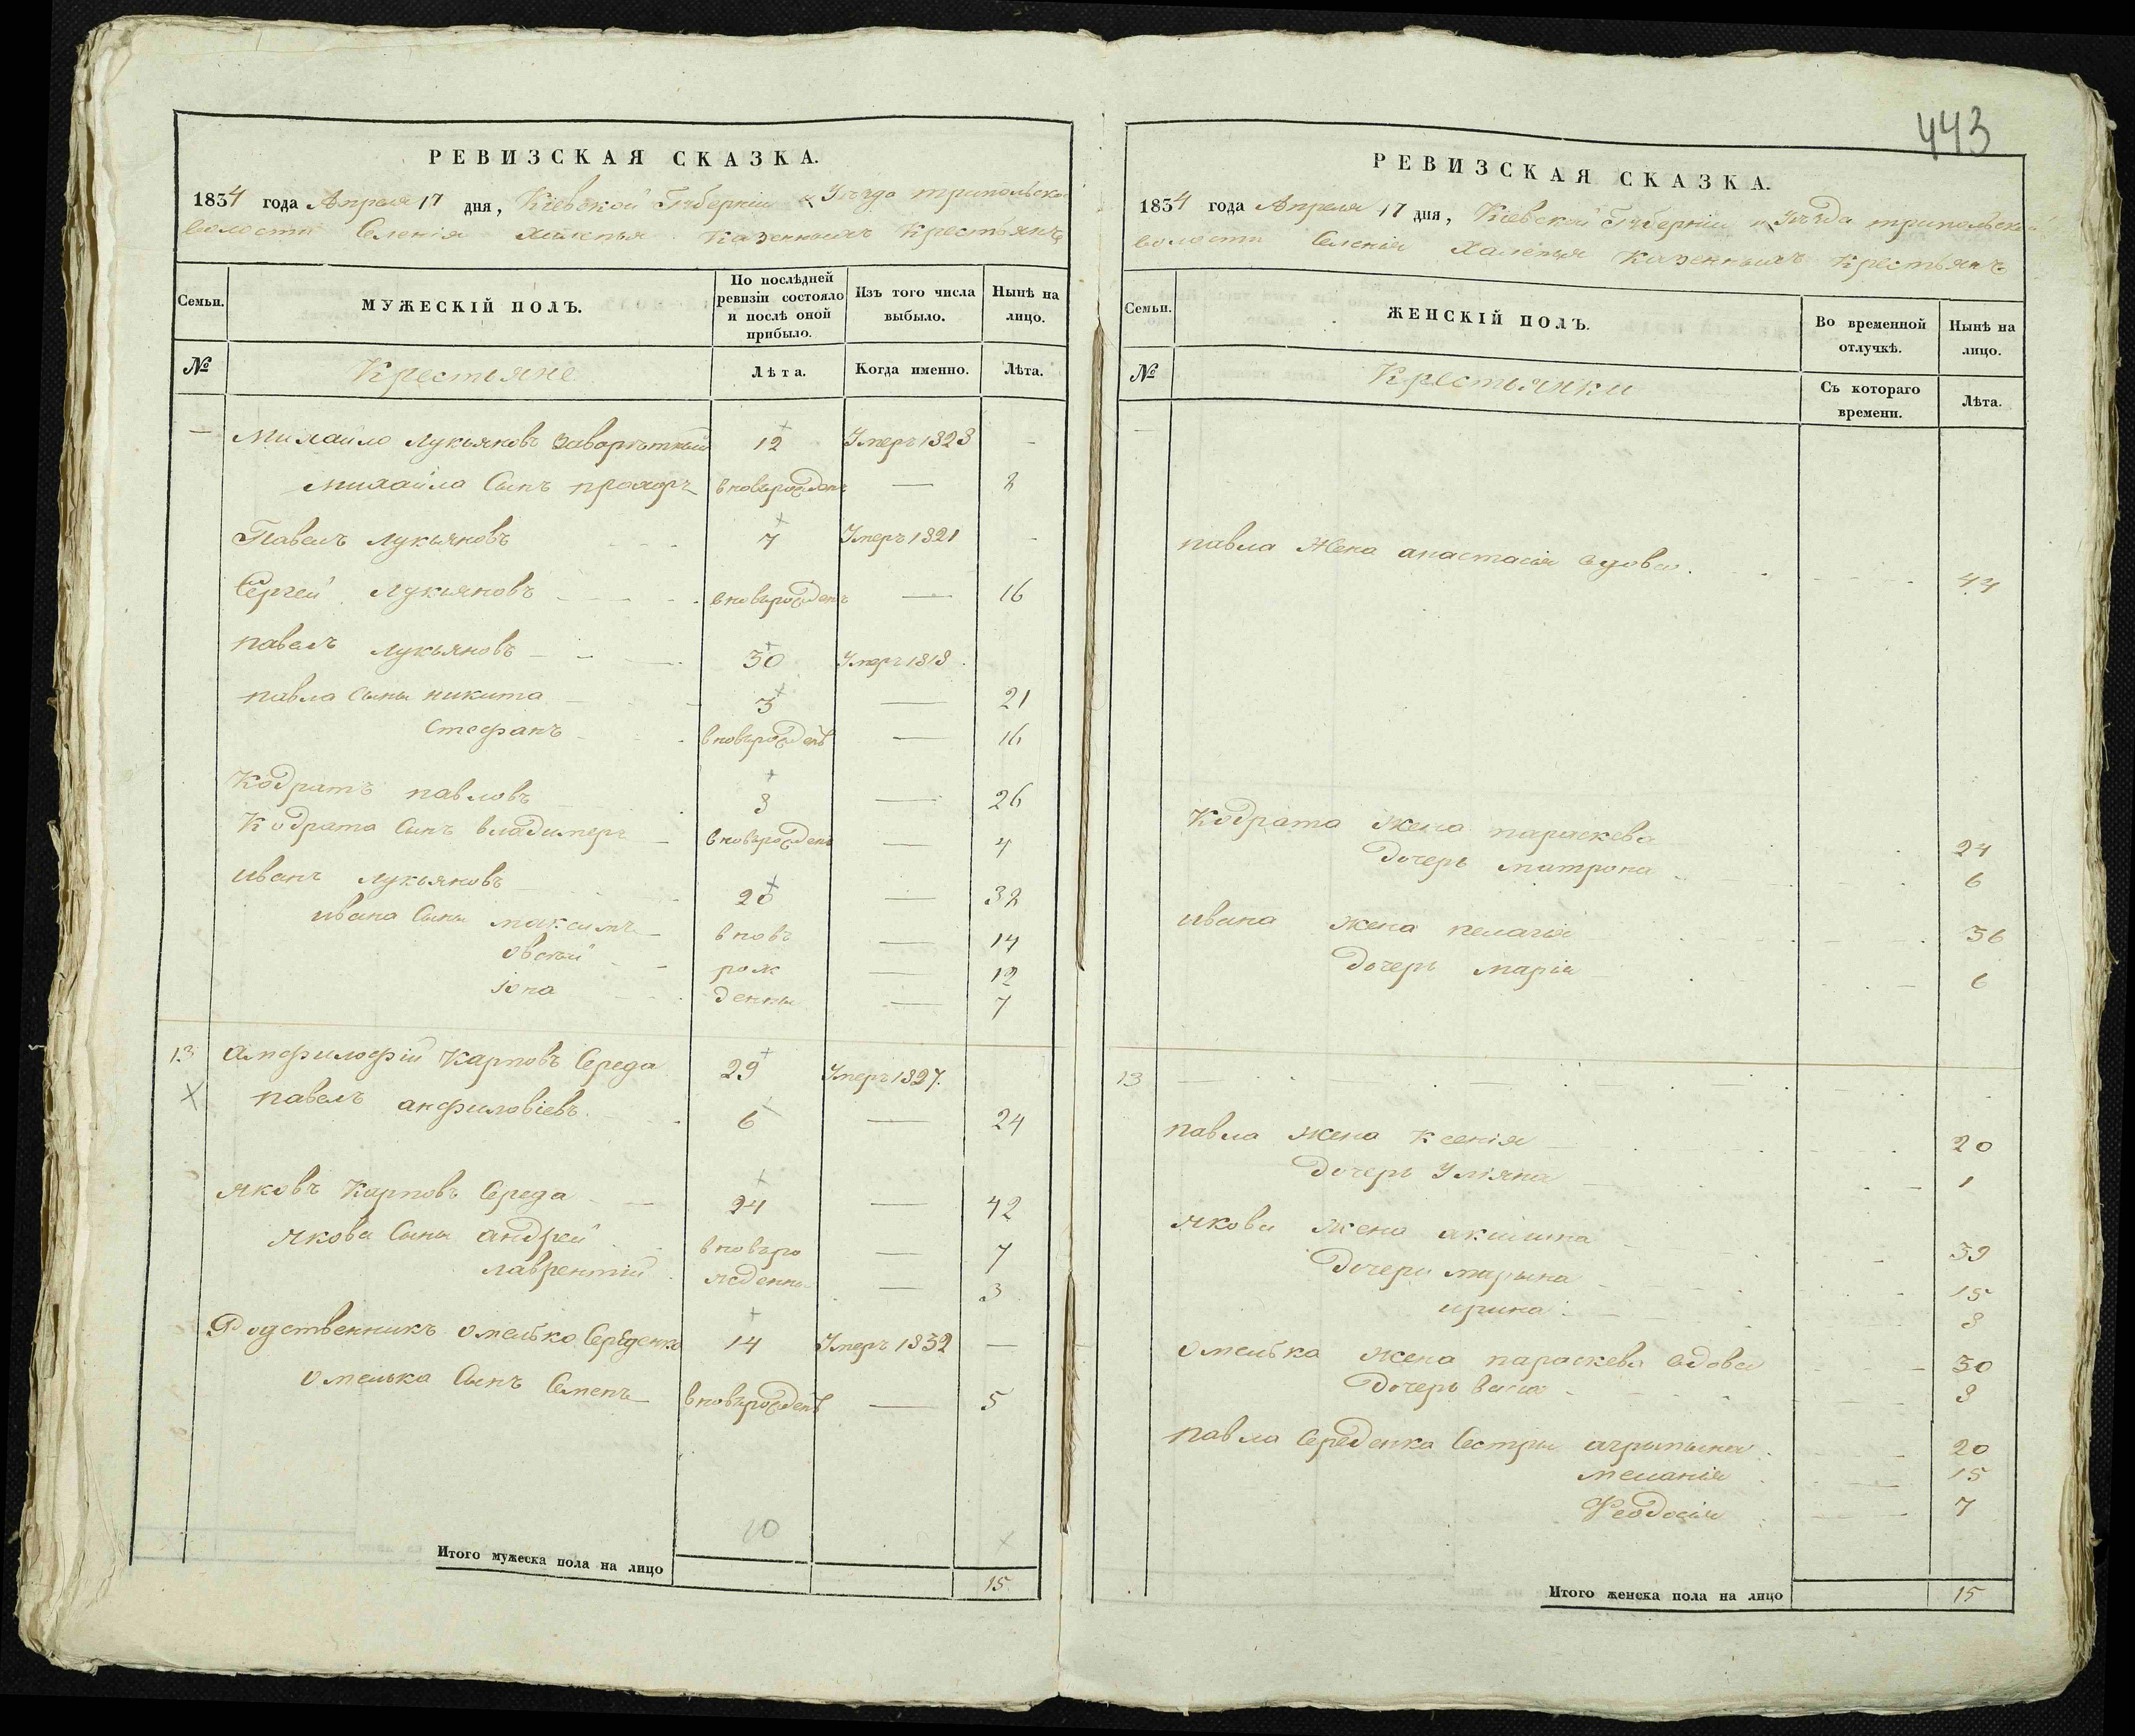 РЕВИЗСКАЯ СКАЗКА.
1834 года Апреля 17 дня, Кіевской Губерніи и Уѣзда трипольской
волости Селенія Халепья Казенныхъ Крестьянъ
Семьи.
МУЖЕСКІЙ ПОЛЪ.
По послѣдней ревизіи состояло и послѣ оной прибыло.
Изъ того числа выбыло.
Нынѣ на лицо.
№
Крестьяне
Лѣта.
Когда именно.
Лѣта.
— Михайло Лукьяновъ 12 Умеръ 1823 -
Михайла Сынъ прохоръ вновьрожденъ — 2
Павелъ Лукьяновъ 7 Умеръ 1821 -
Сергей Лукьяновъ вновьрожденъ — 16
павелъ Лукьяновъ 30 Умеръ 1818
павла Сыны никита 3 — 21
Стефанъ вновьрожденъ — 16
Кодратъ павловъ 8 — 26
Кодрата Сынъ владимеръ вновьрожденъ — 4
Иванъ Лукьяновъ 20 — 32
ивана Сыны максимъ вновь — 14
овсѣй рож — 12
іона денны — 7
13 Амфилофій Карповъ Середа 29 Умеръ 1827.
павелъ анфиловіевъ 6 — 24
Яковъ Карповъ Середа 24 — 42
Якова Сыны андрей вновьро — 7
лаврентій жденны — 3
Родственникъ Омелько Середенко 14 Умеръ 1832 —
Омелька Сынъ Семенъ вновьрожденъ — 5
10
Итого мужеска пола на лицо 15
443
РЕВИЗСКАЯ СКАЗКА.
1834 года Апреля 17 дня, Кіевской Губерніи и Уѣзда трипольской
волости Селенія Халепья Казенныхъ Крестьянъ
Семьи.
ЖЕНСКІЙ ПОЛЪ.
Во временной отлучкѣ.
Нынѣ на лицо.
№
Крестьянки
Съ котораго времени.
Лѣта.
павла Жена анастасія вдова. 44
Кодрата Жена параскева 24
Дочерь матрона 6
ивана Жена пелагія 36
Дочерь марія 6
13
павла Жена Ксенія 20
Дочерь Уліяна 1
якова Жена акилина 39
Дочери марына 15
ирина 8
Омелька Жена параскева вдова 30
Дочерь васса 8
павла Середенка Сестры агрыпына 20
меланія 15
Феодосія 7
Итого женска пола на лицо 15